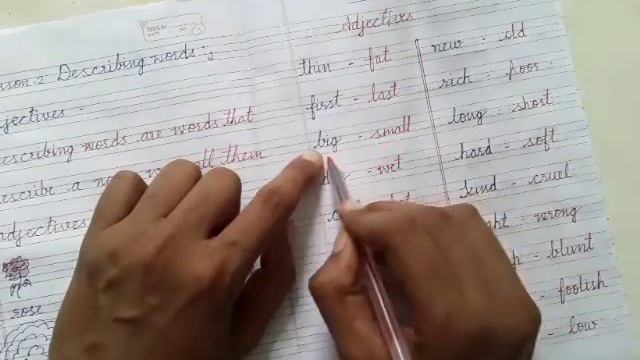 sson-2 Describing words :-
djectives -
escribing words are words that
describe a all them
adjectives
rose
Adjectives
thin - fat
first - last
big - small
wet
new - old
rich - poor
long - short
hard - soft
kind - cruel
ght - wrong
p - blunt
- foolish
- low